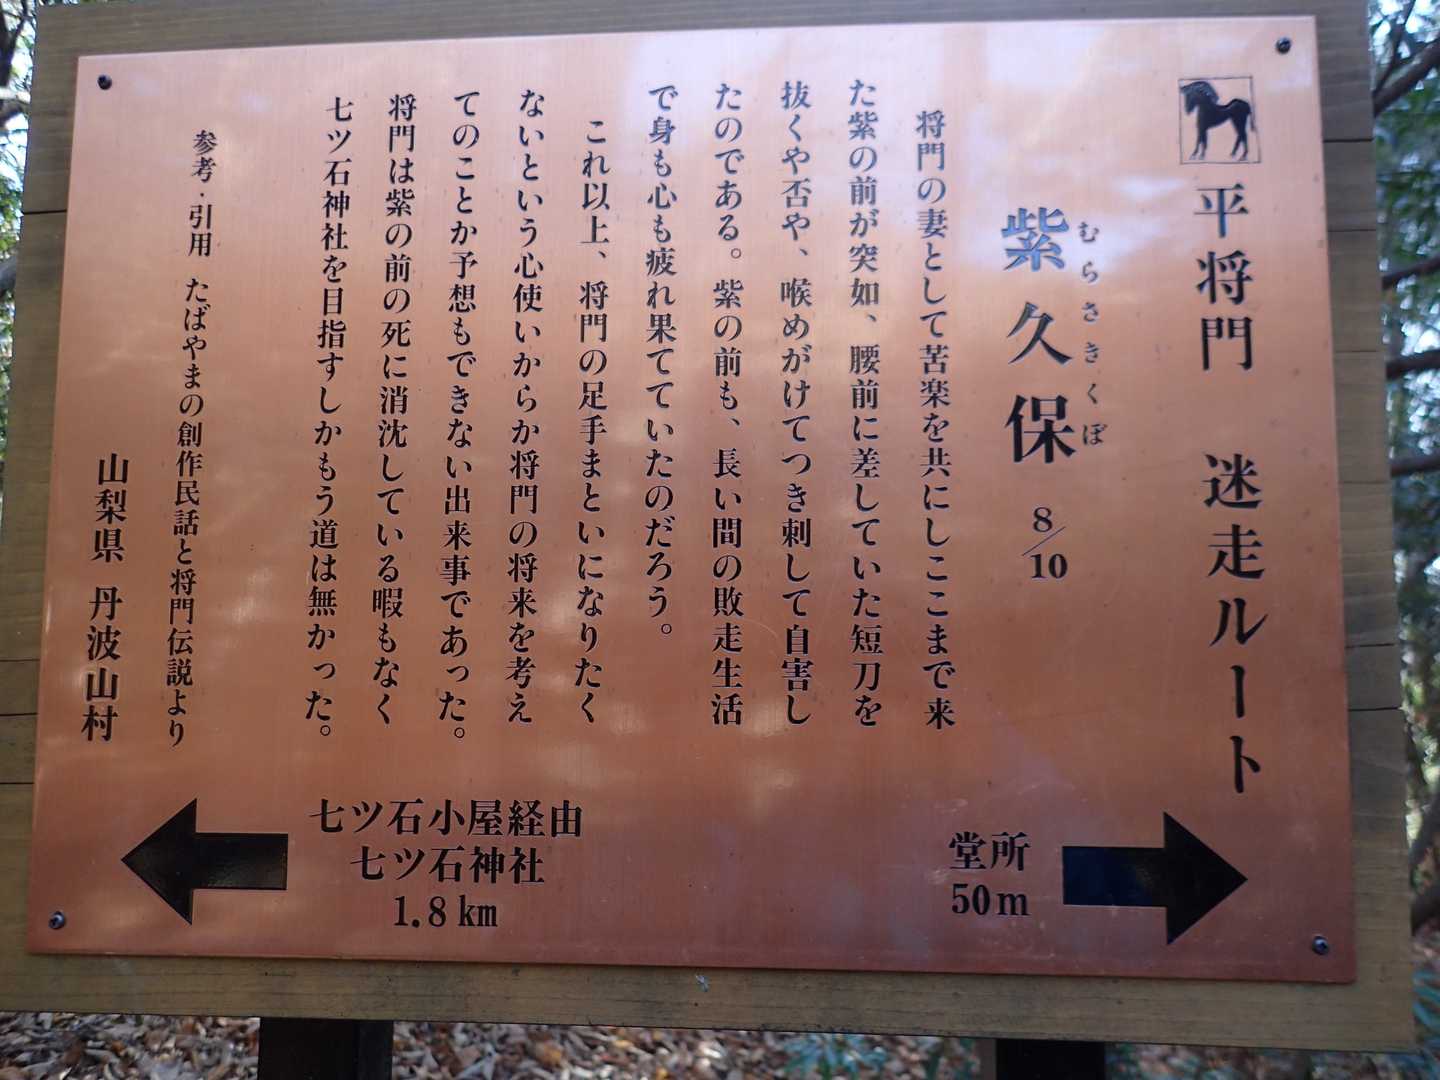 平将門 迷走ルート
むらさきくぼ
紫久保 8/10
将門の妻として苦楽を共にしここまで来
た紫の前が突如、腰前に差していた短刀を
抜くや否や、喉めがけてつき刺して自害し
たのである。紫の前も、長い間の敗走生活
で身も心も疲れ果てていたのだろう。
これ以上、将門の足手まといになりたく
ないという心使いからか将門の将来を考え
てのことか予想もできない出来事であった。
将門は紫の前の死に消沈している暇もなく
七ツ石神社を目指すしかもう道は無かった。
参考・引用 たばやまの創作民話と将門伝説より
山梨県 丹波山村
七ツ石小屋経由
七ツ石神社
1.8km
堂所
50m